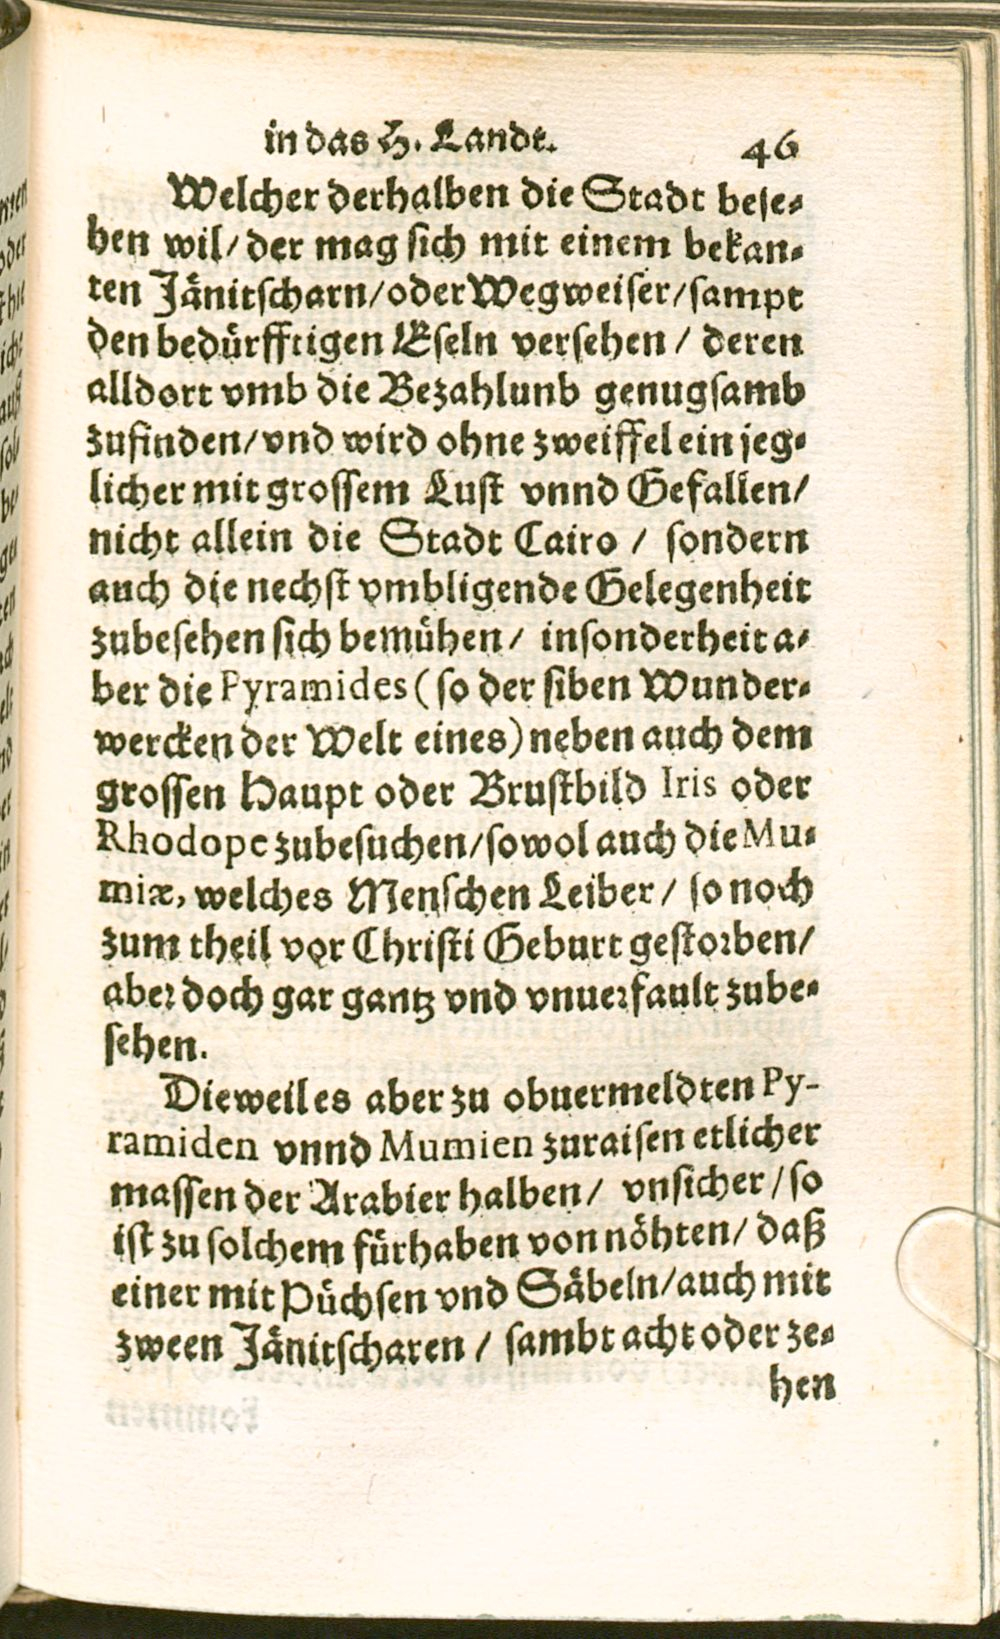 in das H. Landt. 46
Welcher derhalben die Stadt bese-
hen wil/ der mag sich mit einem bekan-
ten Jänitscharn/oder Wegweiser/sampt
den bedürfftigen Eseln versehen / deren
alldort vmb die Bezahlunb genugsamb
zufinden/vnd wird ohne zweiffel ein jeg-
licher mit grossem Lust vnnd Gefallen/
nicht allein die Stadt Cairo / sondern
auch die nechst vmbligende Gelegenheit
zubesehen sich bemühen/ insonderheit a-
ber die Pyramides (so der siben Wunder-
wercken der Welt eines) neben auch dem
grossen Haupt oder Brustbild Iris oder
Rhodope zubesuchen/sowol auch die Mu-
miæ, welches Menschen Leiber/ so noch
zum theil vor Christi Geburt gestorben/
aber doch gar gantz vnd vnuerfault zube-
sehen.
Dieweil es aber zu obuermeldten Py-
ramiden vnnd Mumien zuraisen etlicher
massen der Arabier halben/ vnsicher/so
ist zu solchem fürhaben von nöhten/ daß
einer mit Püchsen vnd Säbeln/auch mit
zween Jänitscharen / sambt acht oder ze-
hen